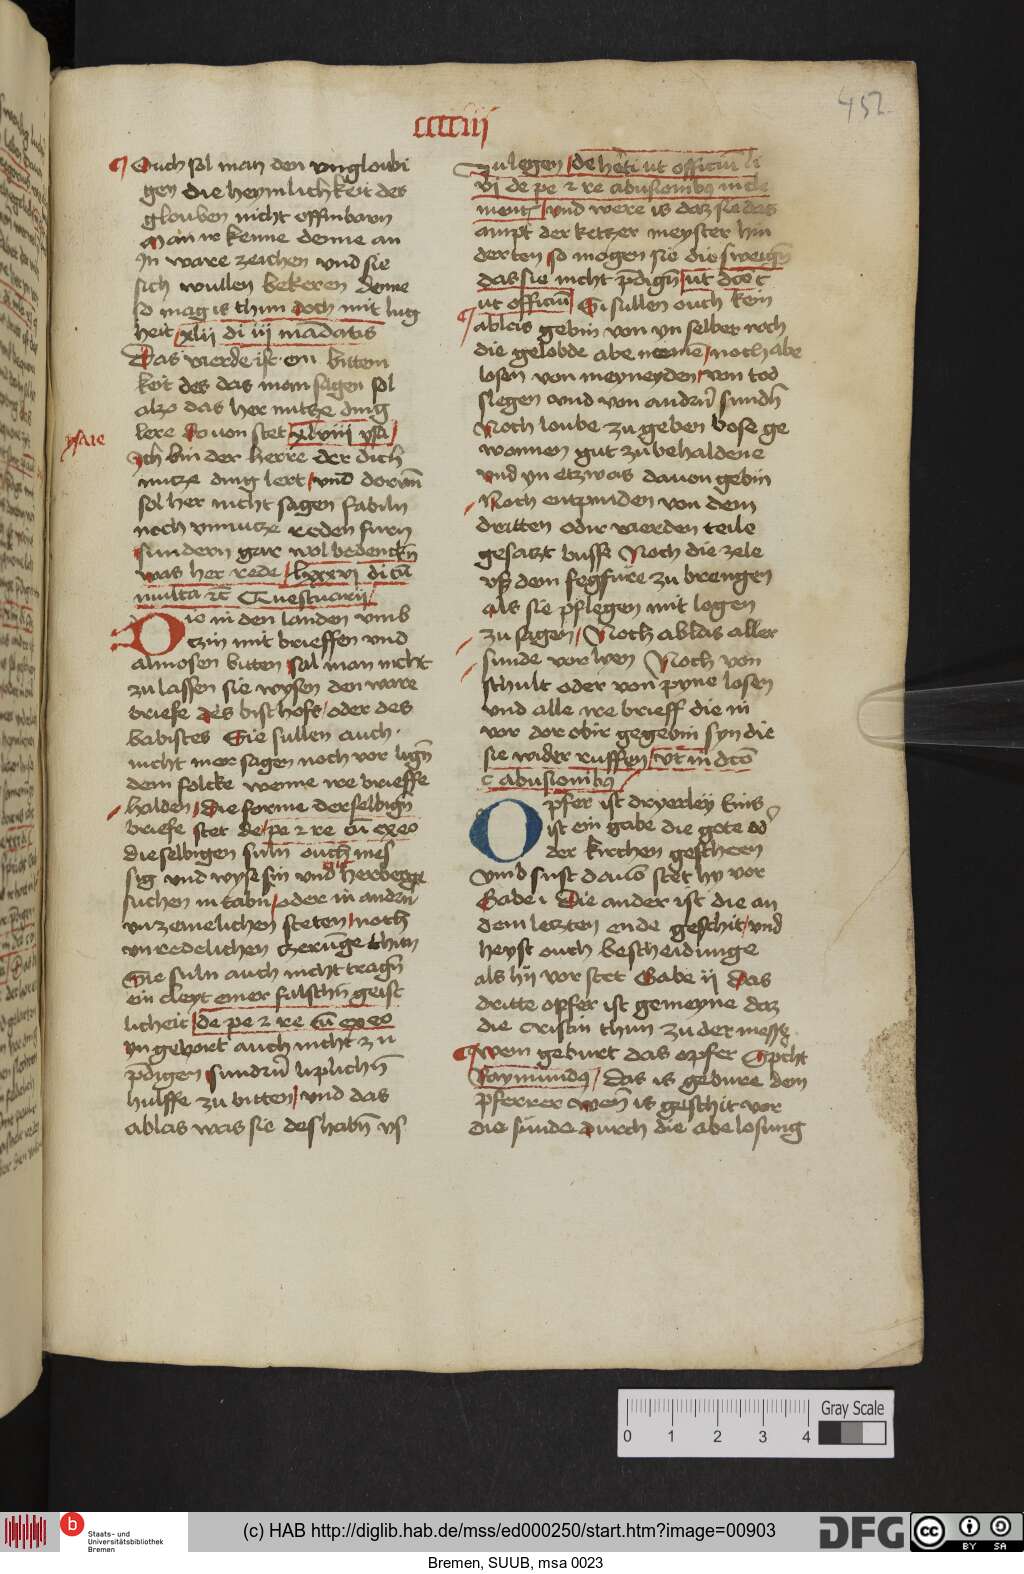 452
cccciii
Ouch sol man den vngloubi
gen die heymlichkeit des
glouben nicht offinbarn
Man irkenne denne an
In ware zeichen vnd sie
sich wullen bekeren denne
so mag is thun doch mit lug
heit xlii di iii mādatis
Das vierde ist ein bittern
keit des das man sagen sol
also das her nutze ding
lere Douon stet xlviii ysa
ysaie
Ich bin der herre der dich
nutze ding lert vnd dorūm
sol her nicht sagen fabiln
noch vnnutze reden furn
sundern gar wol bedenckn̄
was her rede lxxxvi di cū
multa ꝛc̄ Questuarii
Die in den landen vmb
czin mit brieffen vnd
almosen bitten sal man nicht
zu lassen sie wysen den ware
briefe des bischofs oder des
babistes Sie sullen auch
nicht mer sagen noch vor lign̄
dem folcke wenne ire brieffe
halden Die forme der selbign̄
briefe stet de pe ⁊ re cū ex eo
die selbigen suln ouch mes
sig vnd wyse sin vnd herberge
suchen in tabn̄ oder in andern
vnzemelichen steten noch
vnredelichen czerūge thun
Sie suln auch nicht tragn̄
ein cleyt einer falschn̄ geist
licheit de pe ⁊ re cū ex eo
vngevort auch nicht zu
p̄digen sundern̄ liplichn̄
hulffe zu bitten vnd das
ablas was sie des habn̄ vf
zu legen de hereti ut officiū li
vi de pe ⁊ re abusionibꝰ in cle
ment vnd were is daz sie das
ampt der ketzer meyster hin
derten so mogen sie die sweign̄
das sie nicht p̄dign̄ ut dc̄o c
ut officiū Si sullen ouch kein
ablas gebin von yn selber noch
die gelobde abe nemē noch abe
losen von meyneyden von tod
slegen vnd von andrn̄ sundn̄
Noch loube zu geben bose ge
wonnen gut zu behaldene
vnd yn etzwas dauon gebin
Noch entpinden von dem
dritten odir vierden teile
gesatzt busse Noch die zele
vß dem fegfure zu brengen
als sie pflegen mit logen
zu sagen Noch ablas aller
sunde vorlien Noch von
schult oder von pyne losen
vnd alle ire brieff die in
vor dor obir gegebin syn die
sie wider ruffen ut in dc̄o
c abusionibꝰ
Opfer ist dryerley Eins
ist ein gabe die gote ad̓
der kirchen gescheen
vnd sust dauō stet hy vor
Gabe i Die ander ist die an
dem letzten ende geschit vnd
heyst ouch bescheidunge
als hy vor stet Gabe ii Das
dritte opfer ist gemeyne daz
die cristin thun zu der messe
Wem geburt das opfer Spricht
Raymundꝰ Das is gebure dem
pferrer wen is geschit vor
die sunde durch die abelosung
0 1 2 3 4
Gray Scale
b
Staats- und
Universitätsbibliothek
Bremen
(c) HAB http://diglib.hab.de/mss/ed000250/start.htm?image=00903
DFG
cc
BY SA
Bremen, SUUB, msa 0023